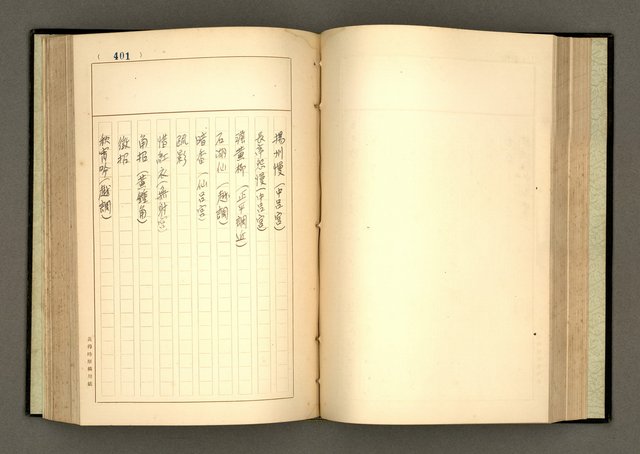 ( 401 )
揚州慢(中呂宮)
長亭怨慢(中呂宮)
澹黃柳(正平調近)
石湖仙(越調)
暗香(仙呂宮)
疏影
惜紅衣(無射宮)
角招(黃鐘角)
徵招
秋宵吟(越調)